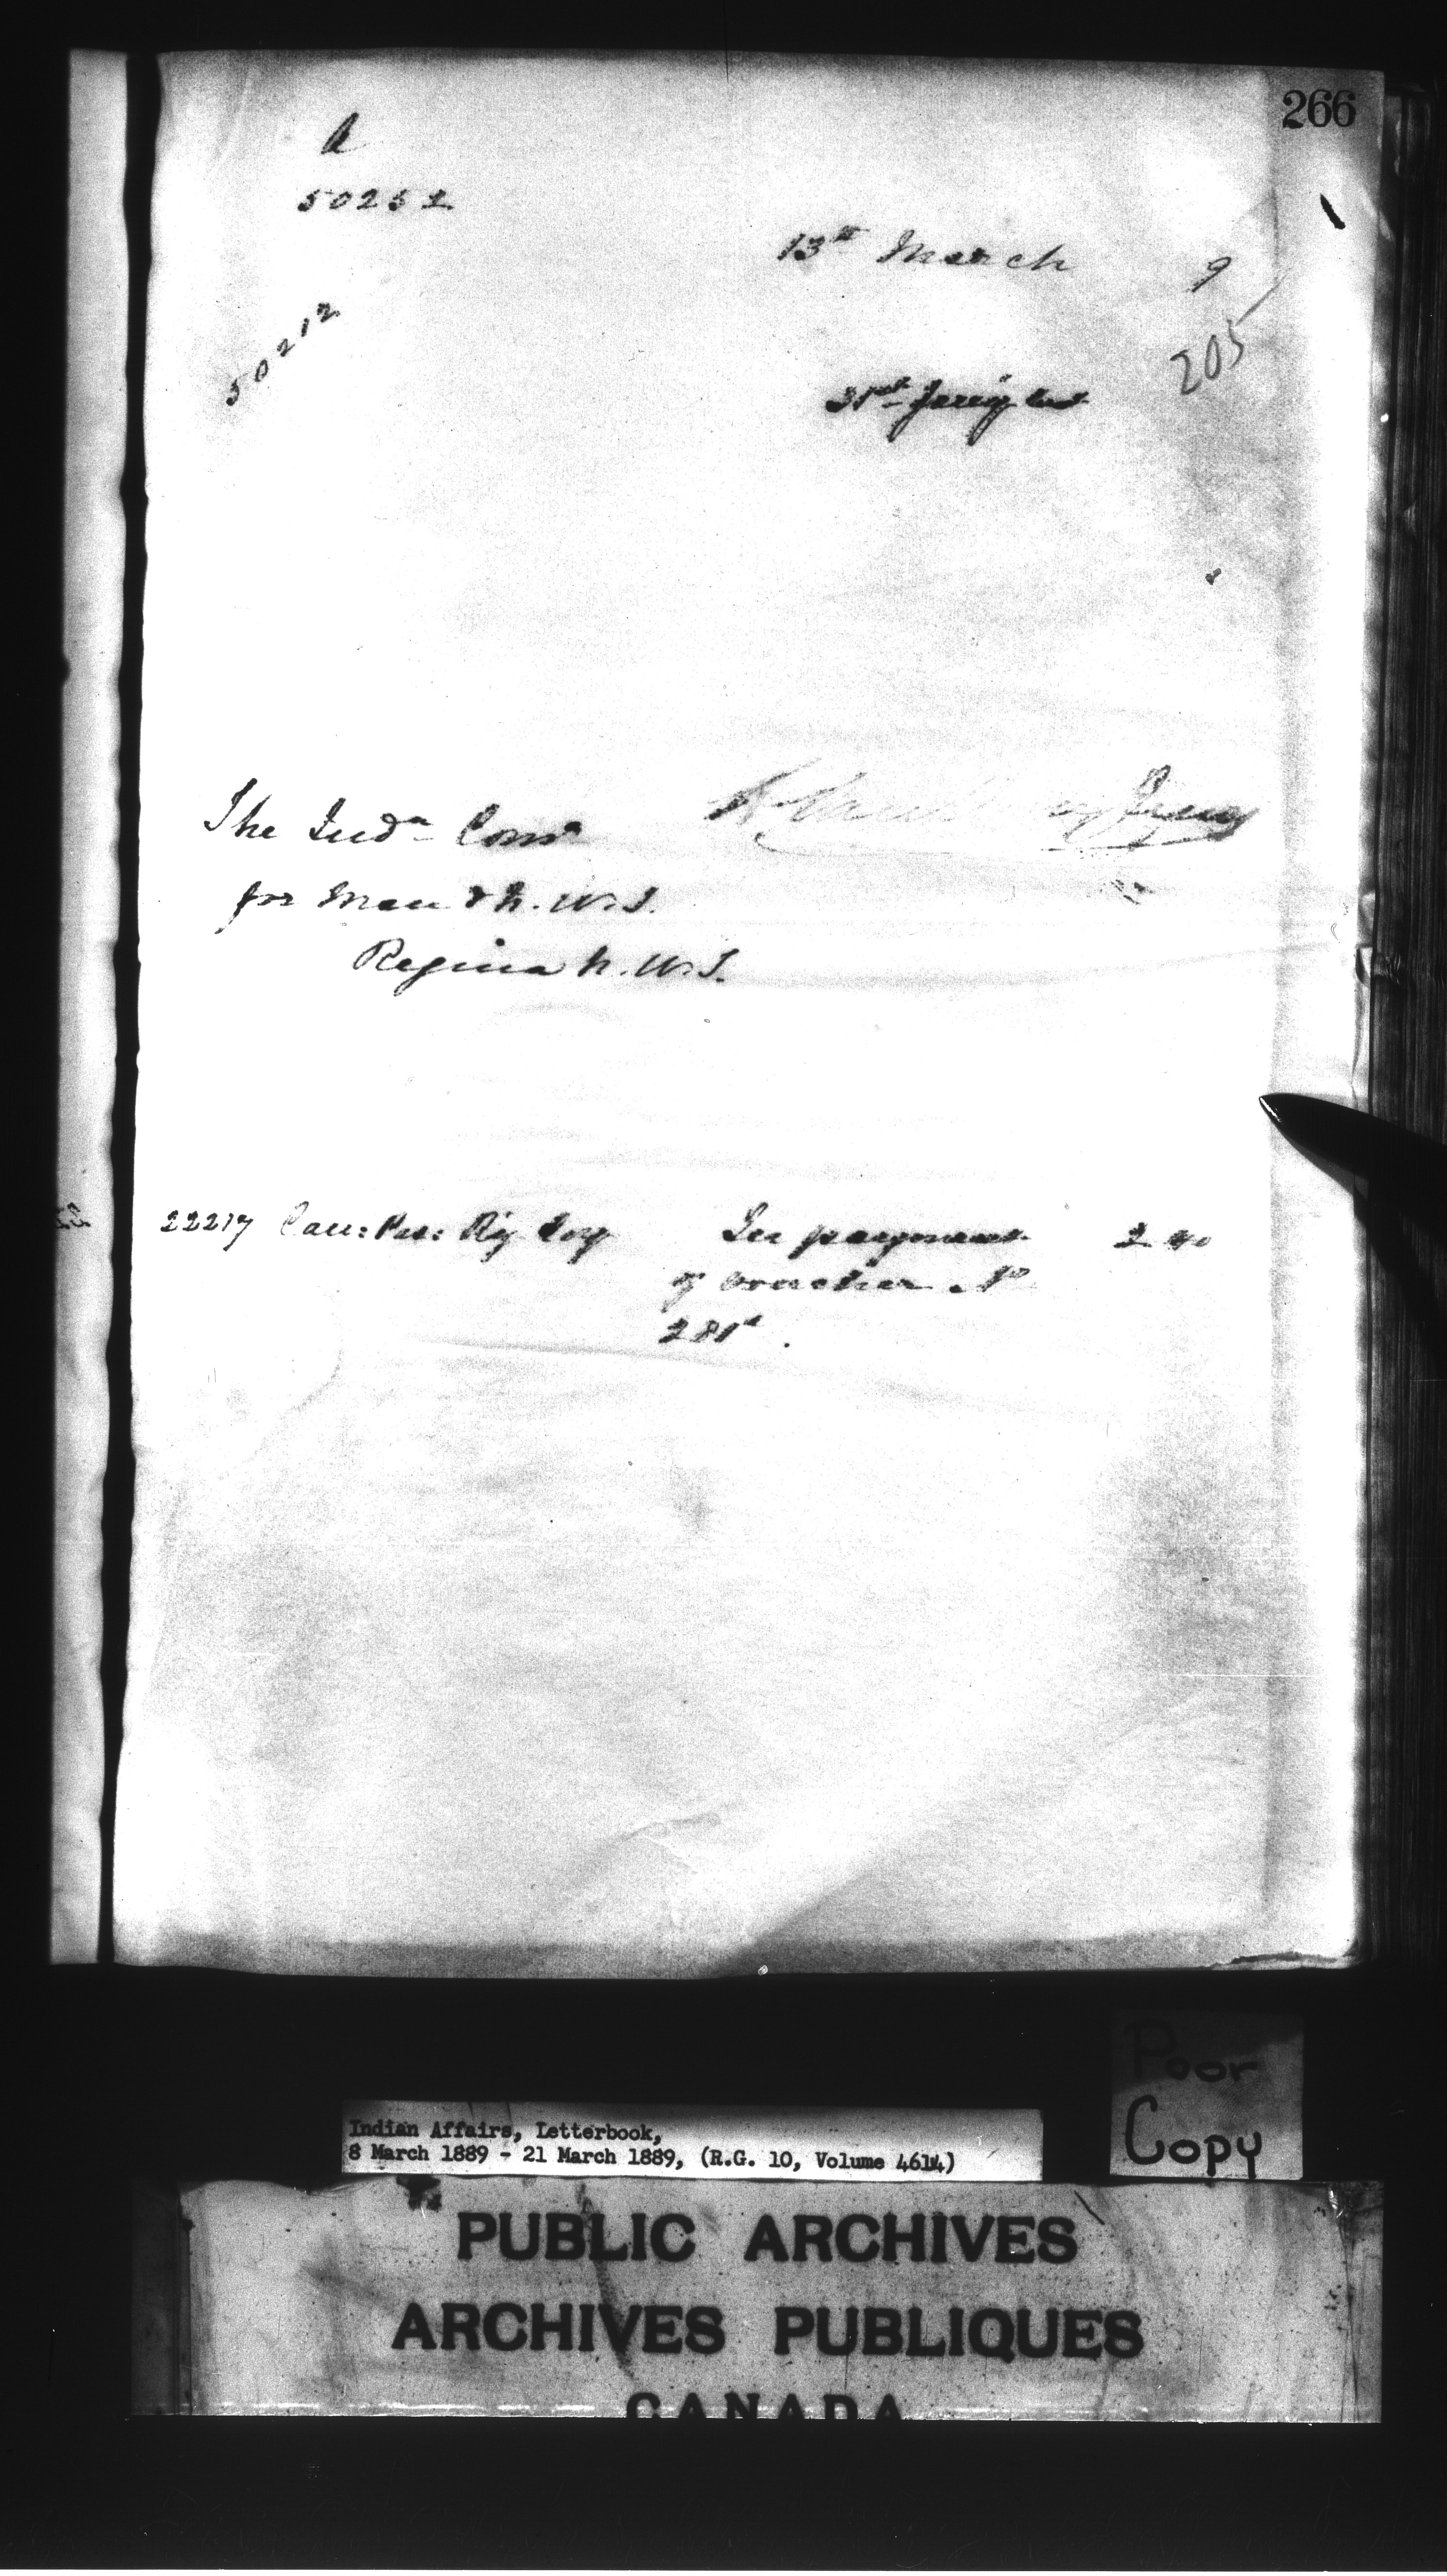 266
A
50252
13th March 9
50212
205
31st Jany last
The Indn Comr
for Man & N.W.T.
Regina N.W.T.
22217 Can: Pac: Ry Coy In payment 2 40
of voucher No
281
Poor
Copy
Indian Affairs, Letterbook,
8 March 1889 - 21 March 1889, (R.G. 10, Volume 4614)
PUBLIC ARCHIVES
ARCHIVES PUBLIQUES
CANADA